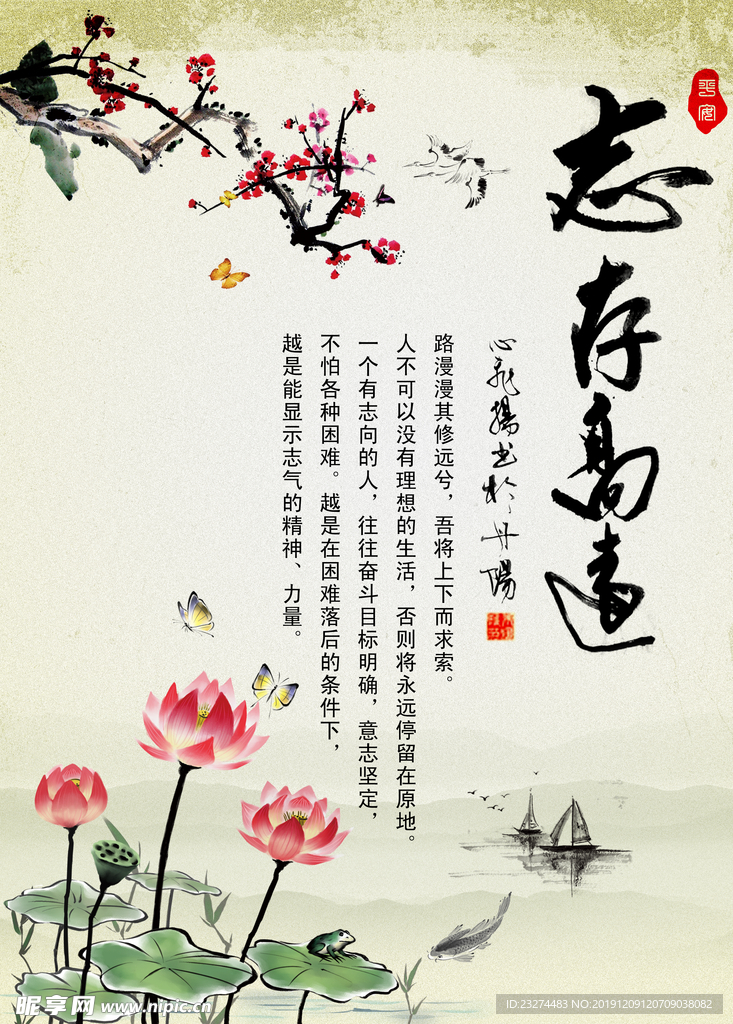 平安
志存高远
心飛揚书於丹陽
路漫漫其修远兮，吾将上下而求索。
人不可以没有理想的生活，否则将永远停留在原地。
一个有志向的人，往往奋斗目标明确，意志坚定，
不怕各种困难。越是在困难落后的条件下，
越是能显示志气的精神、力量。
昵享网 www.nipic.cn
ID:23274483 NO:20191209120709038082